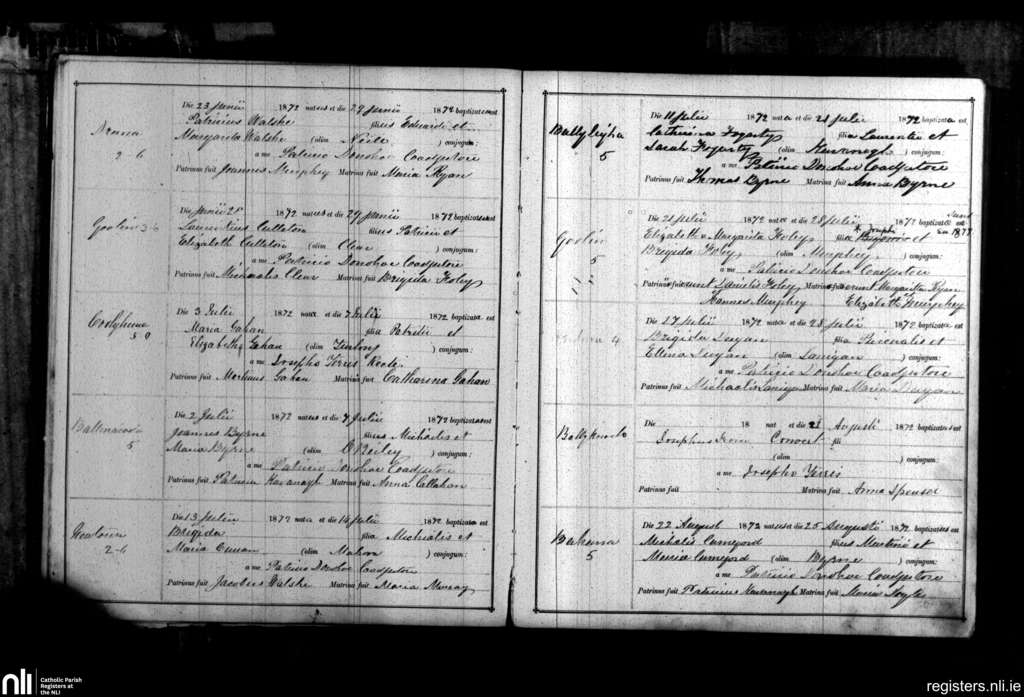 Die 23 Junii 1872 natus et die 29 Junii 1872 baptizatus est
Patricius Walshe filius Edwardi et
Margarita Walshe (olim Neile) conjugum:
2-6
a me Patricio Donohoe Coadjutore
Patrinus fuit Joannes Murphy Matrina fuit Maria Ryan
Die Junii 25 1872 natus et die 29 Junii 1872 baptizatus est
Goolin
Laurentius Culleton filius Patricii et
Elizabeth Culleton (olim Clear) conjugum:
a me Patricio Donohoe Coadjutore
Patrinus fuit Michaelis Clear Matrina fuit Brigida Foley
Die 3 Julii 1872 nata et die 7 Julii 1872 baptizata est
Maria Gahan filia Patritii et
Elizabeth Gahan (olim Furlong) conjugum:
a me Josepho Ferris
Patrinus fuit Gahan Matrina fuit Catharina Gahan
Die 2 Julii 1872 natus et die 7 Julii 1872 baptizatus est
Joannes Byrne filius Michaelis et
5
Maria Byrne (olim O'Reiley) conjugum:
a me Patricio Donohoe Coadjutore
Patrinus fuit Patricius Kavanagh Matrina fuit Anna Callahan
Die 13 Julii 1872 nata et die 14 Julii 1872 baptizata est
Brigida filia Michaelis et
2-6
Maria (olim Mahon) conjugum:
a me Patricio Donohoe Coadjutore
Patrinus fuit Jacobus Walshe Matrina fuit Maria Murray
Die 11 Julii 1872 nata et die 21 Julii 1872 baptizata est
Catherina Fogarty filia Laurentii et
5
Sarah Fogarty (olim Kavanagh) conjugum:
a me Patricio Donohoe Coadjutore
Patrinus fuit Thomas Byrne Matrina fuit Anna Byrne
Die 21 Julii 1872 nata et die 28 Julii 1872 baptizata est
Goolin
Elizabeth & Margarita Foley filia et
5
Brigida Foley (olim Murphy) conjugum:
a me Patricio Donohoe Coadjutore
Patrinus fuerunt Danielis Foley Matrina fuerunt Margarita Ryan
Joannes Murphy Elizabeth Murphy
Die 27 Julii 1872 nata et die 28 Julii 1872 baptizata est
Brigida filia et
4
Ellena (olim Lanigan) conjugum:
a me Patricio Donohoe Coadjutore
Patrinus fuit Michaelis Matrina fuit Maria
Die 18 nat et die 21 Augusti 1872 baptizatus est
Josephus Convert fili
(olim ) conjugum:
a me Josepho Ferris
Patrinus fuit Matrina fuit Anna Spensor
Die 22 August 1872 natus et die 25 Augusti 1872 baptizatus est
Bahana
Michalis Cumeford filius Martini et
5
Maria Cumeford (olim Byrne) conjugum:
a me Patricio Donohoe Coadjutore
Patrinus fuit Patricius Kavanagh Matrina fuit Maria
nli
Catholic Parish
Registers at
the NLI
registers.nli.ie